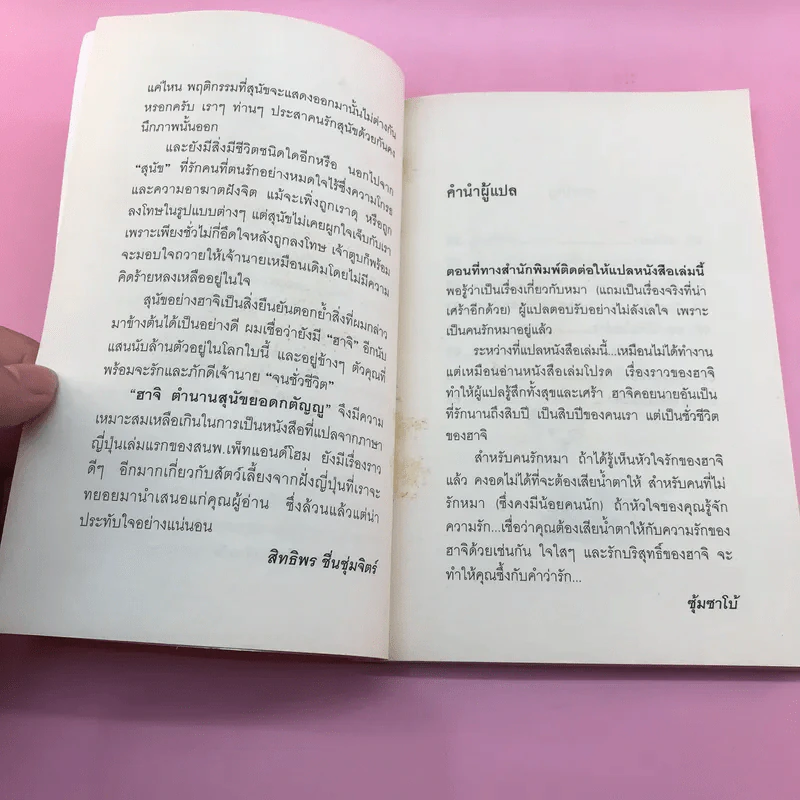 แค่ไหน พฤติกรรมที่สุนัขจะแสดงออกมานั้นไม่ต่างกัน
หรอกครับ เราๆ ท่านๆ ประสาคนรักสุนัขด้วยกันคง
นึกภาพนั้นออก
และยังมีสิ่งมีชีวิตชนิดใดอีกหรือ นอกไปจาก
“สุนัข” ที่รักคนที่ตนรักอย่างหมดใจไร้ซึ่งความโกรธ
และความอาฆาตฝังจิต แม้จะเพิ่งถูกเราดุ หรือถูก
ลงโทษในรูปแบบต่างๆ แต่สุนัขไม่เคยผูกใจเจ็บกับเรา
เพราะเพียงชั่วไม่กี่อึดใจหลังถูกลงโทษ เจ้าตูบก็พร้อม
จะมอบใจถวายให้เจ้านายเหมือนเดิมโดยไม่มีความ
คิดร้ายหลงเหลืออยู่ในใจ
สุนัขอย่างฮาจิเป็นสิ่งยืนยันตอกย้ำสิ่งที่ผมกล่าว
มาข้างต้นได้เป็นอย่างดี ผมเชื่อว่ายังมี “ฮาจิ” อีกนับ
แสนนับล้านตัวอยู่ในโลกใบนี้ และอยู่ข้างๆ ตัวคุณที่
พร้อมจะรักและภักดีเจ้านาย “จนชั่วชีวิต”
“ฮาจิ ตำนานสุนัขยอดกตัญญู” จึงมีความ
เหมาะสมเหลือเกินในการเป็นหนังสือที่แปลจากภาษา
ญี่ปุ่นเล่มแรกของสนพ.เพ็ทแอนด์โฮม ยังมีเรื่องราว
ดีๆ อีกมากเกี่ยวกับสัตว์เลี้ยงจากฝั่งญี่ปุ่นที่เราจะ
ทยอยมานำเสนอแก่คุณผู้อ่าน ซึ่งล้วนแล้วแต่น่า
ประทับใจอย่างแน่นอน
สิทธิพร ชื่นชุ่มจิตร์
คำนำผู้แปล
ตอนที่ทางสำนักพิมพ์ติดต่อให้แปลหนังสือเล่มนี้
พอรู้ว่าเป็นเรื่องเกี่ยวกับหมา (แถมเป็นเรื่องจริงที่น่า
เศร้าอีกด้วย) ผู้แปลตอบรับอย่างไม่ลังเลใจ เพราะ
เป็นคนรักหมาอยู่แล้ว
ระหว่างที่แปลหนังสือเล่มนี้...เหมือนไม่ได้ทำงาน
แต่เหมือนอ่านหนังสือเล่มโปรด เรื่องราวของฮาจิ
ทำให้ผู้แปลรู้สึกทั้งสุขและเศร้า ฮาจิคอยนายอันเป็น
ที่รักนานถึงสิบปี เป็นสิบปีของคนเรา แต่เป็นชั่วชีวิต
ของฮาจิ
สำหรับคนรักหมา ถ้าได้รู้เห็นหัวใจรักของฮาจิ
แล้ว คงอดไม่ได้ที่จะต้องเสียน้ำตาให้ สำหรับคนที่ไม่
รักหมา (ซึ่งคงมีน้อยคนนัก) ถ้าหัวใจของคุณรู้จัก
ความรัก...เชื่อว่าคุณต้องเสียน้ำตาให้กับความรักของ
ฮาจิด้วยเช่นกัน ใจใสๆ และรักบริสุทธิ์ของฮาจิ จะ
ทำให้คุณซึ้งกับคำว่ารัก...
ซุ้มซาโบ้